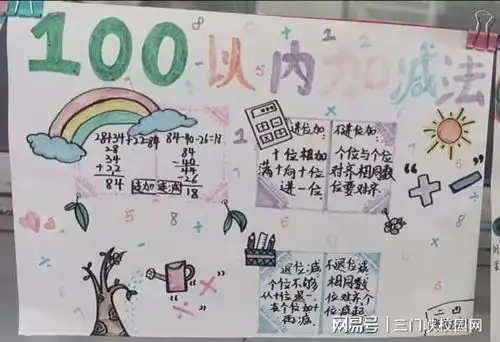 100以内加减法
28+34+22=84
28
34
+22
84
84-40-26=18
84
-40
44
-26
18
连加连减
进位加:
十位相加
满十向十位
进一位.
不进位加:
个位与个位
对齐相同数
位要对齐.
退位减
个位不够
从十位退一.
在个位加十
再减.
不退位减
相同数
位对齐个
位减起
二四
搜狐号|三门峡校园网